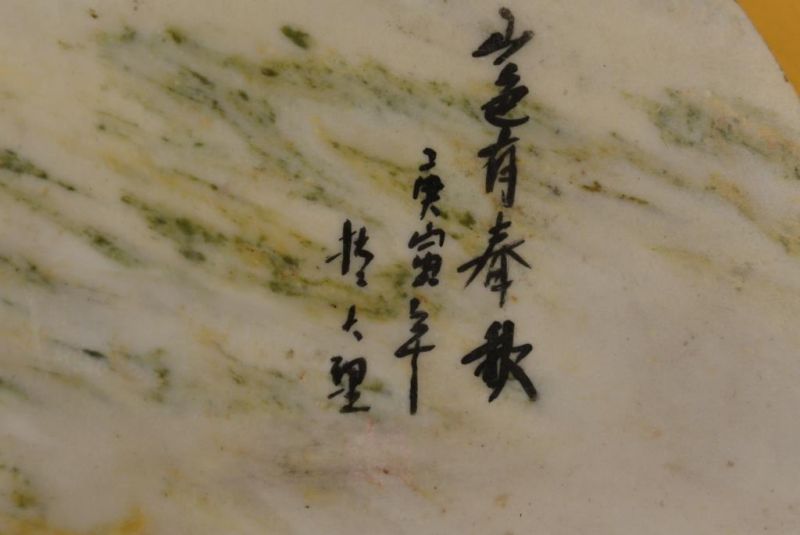 山色有春秋
庚寅年
楚大聖